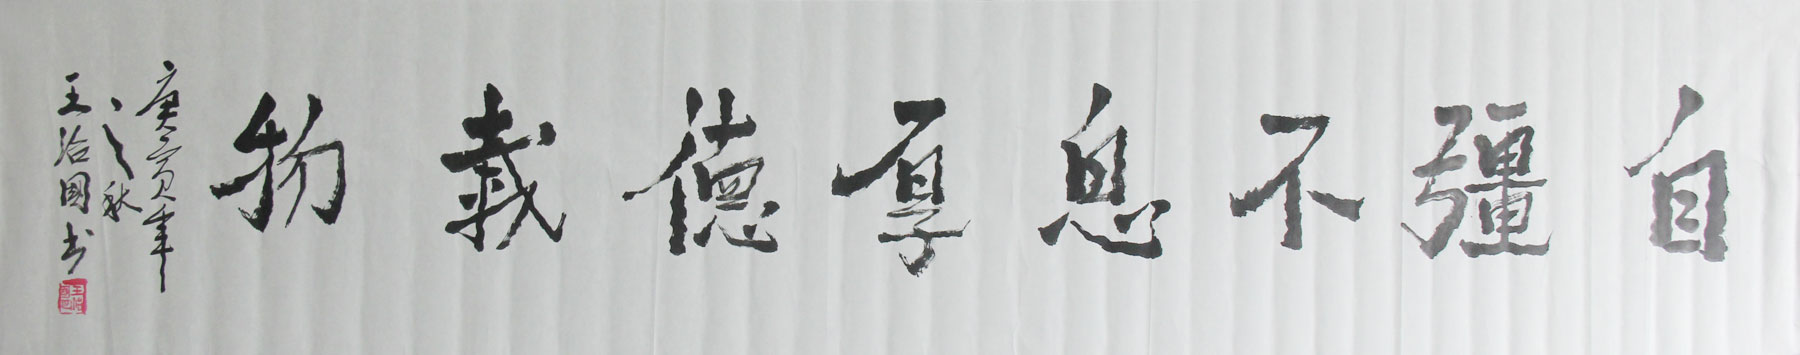 自彊不息厚德載物
庚寅年
之秋
王治國书